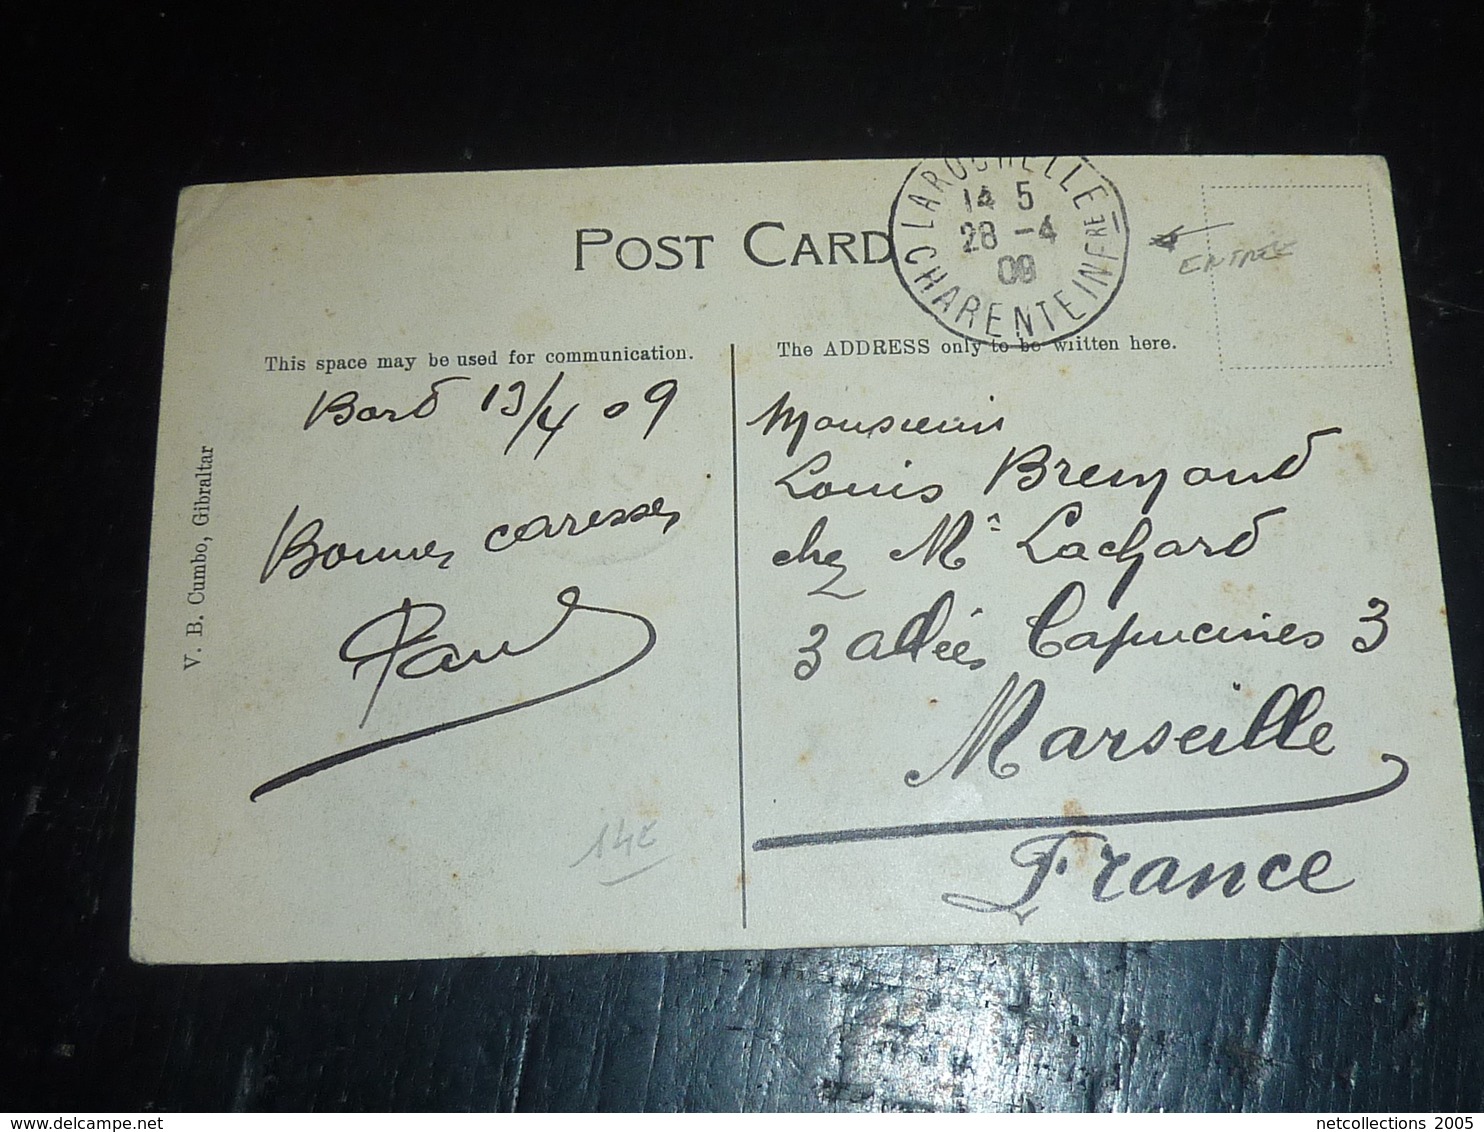 LA ROCHELLE
14 5
28 -4
09
CHARENTE INFRE
ENTREE
POST CARD
This space may be used for communication.
The ADDRESS only to be written here.
V. B. Cumbo, Gibraltar
Bord 13/4 09
Bonnes caresses
Paul
14€
Monsieur
Louis Bremond
chez Mr Lachard
3 allées Capucines 3
Marseille
France
netcollections 2005